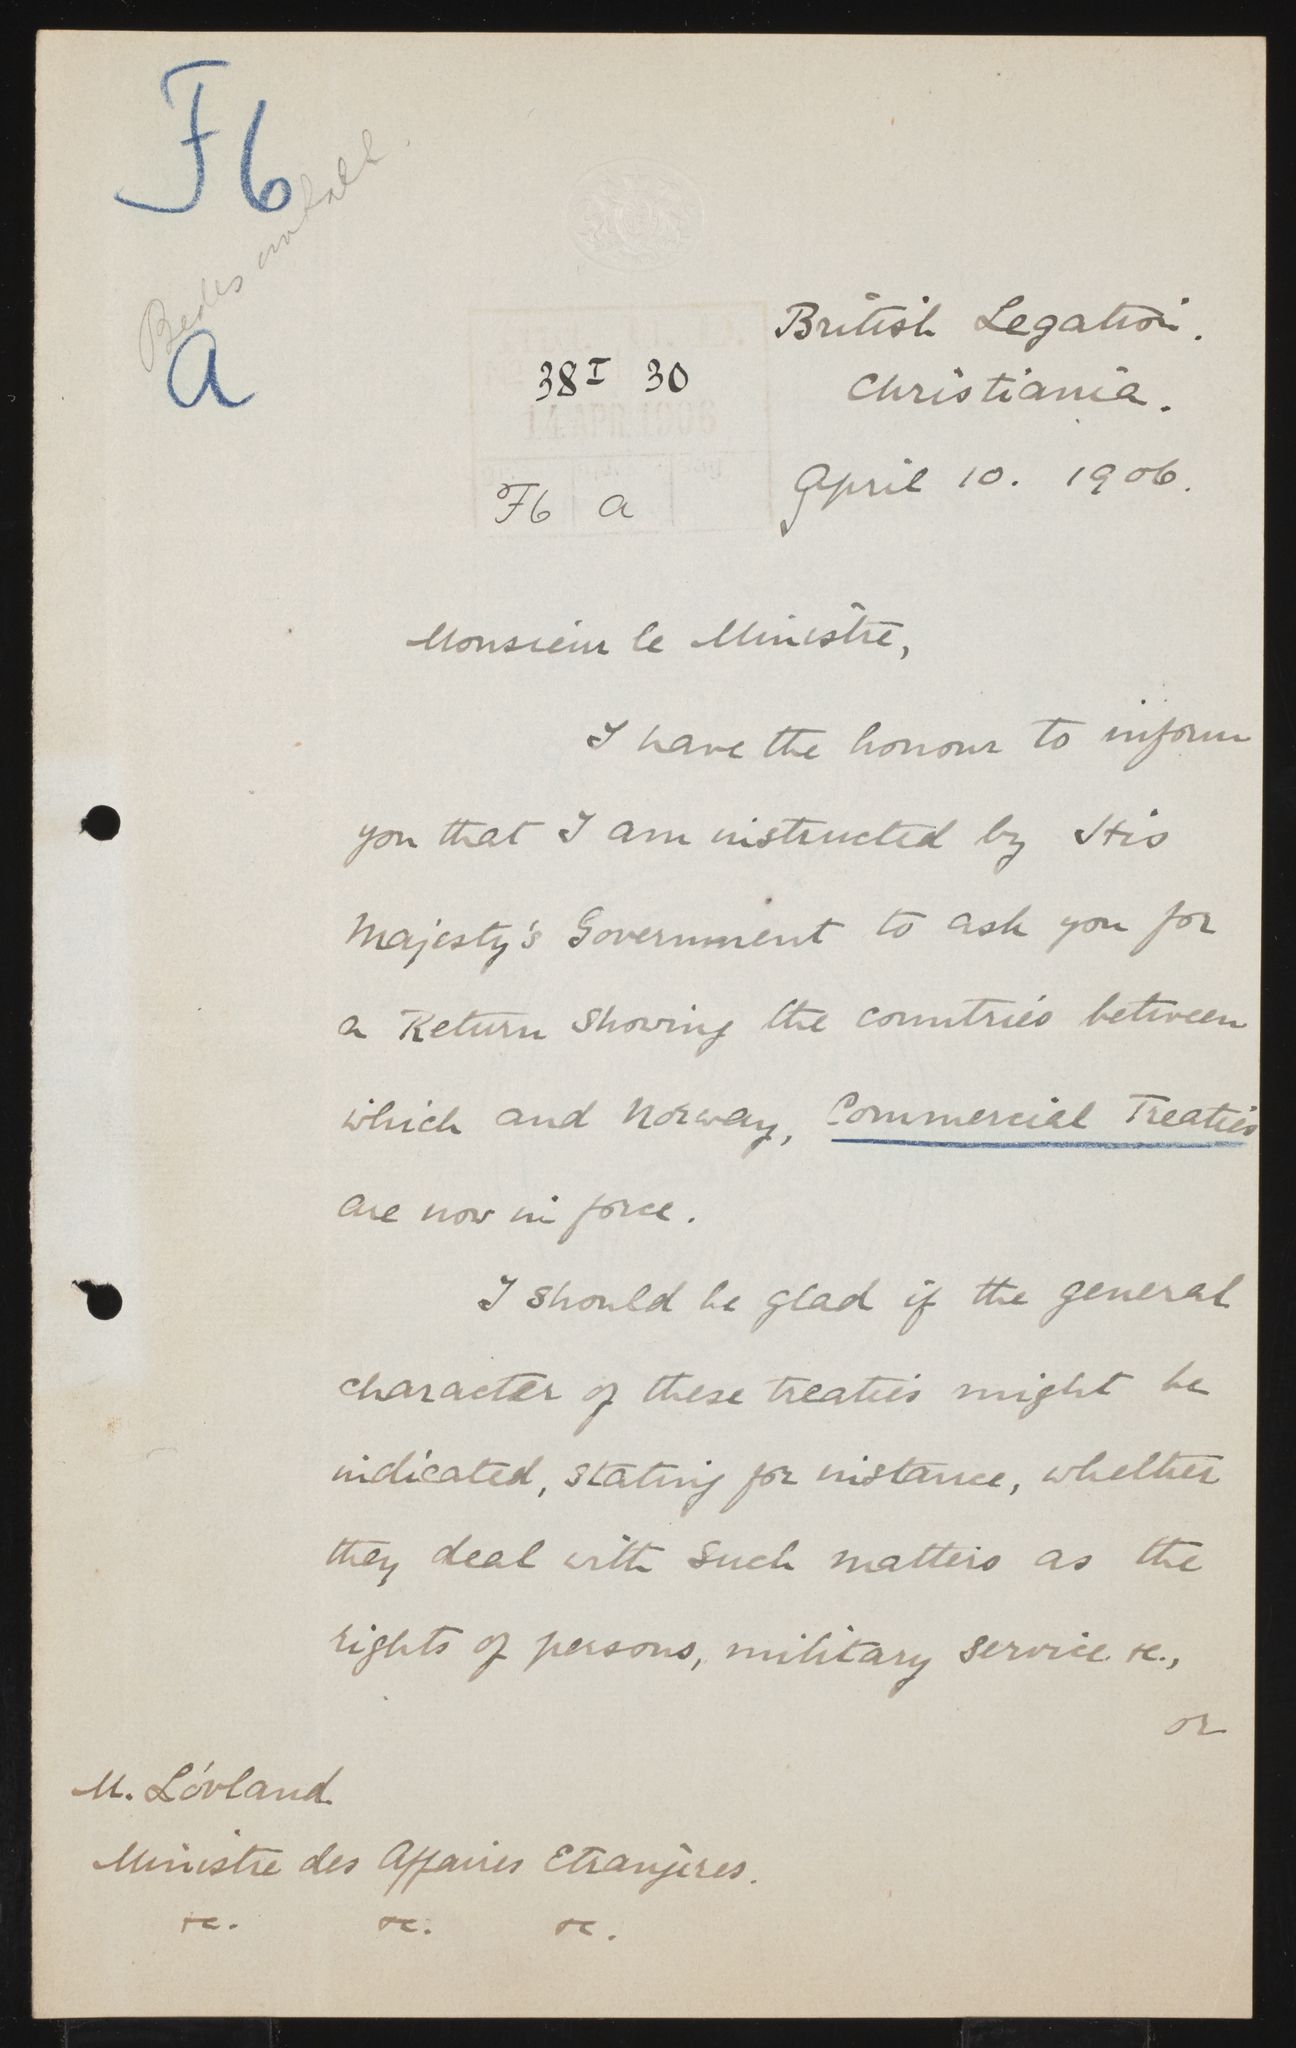 F6
a
British Legation.
38 I 30
Christiania.
14 APR. 1906
April 10. 1906.
F6 a
Monsieur le Ministre,
I have the honour to inform
you that I am instructed by His
Majesty's Government to ask you for
a Return showing the countries between
which and Norway, Commercial Treaties
are now in force.
I should be glad if the general
character of these treaties might be
indicated, stating for instance, whether
they deal with such matters as the
rights of persons, military service &c.,
or
M. Lóvland.
Ministre des Affaires Etrangères.
&c. &c. &c.